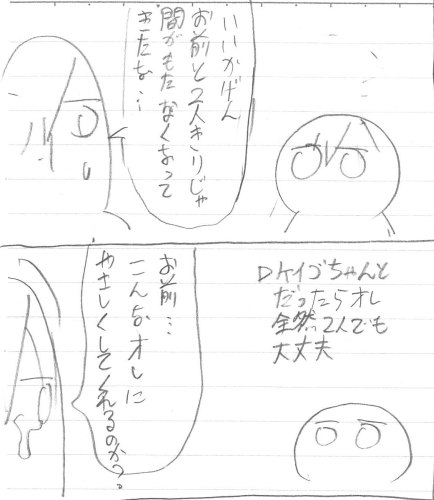 いいかげん
お前と2人きりじゃ
間がもたなくなって
きたな…
Dケイゴちゃんと
だったらオレ
全然2人でも
大丈夫
お前…
こんなオレに
やさしくしてくれるのか?